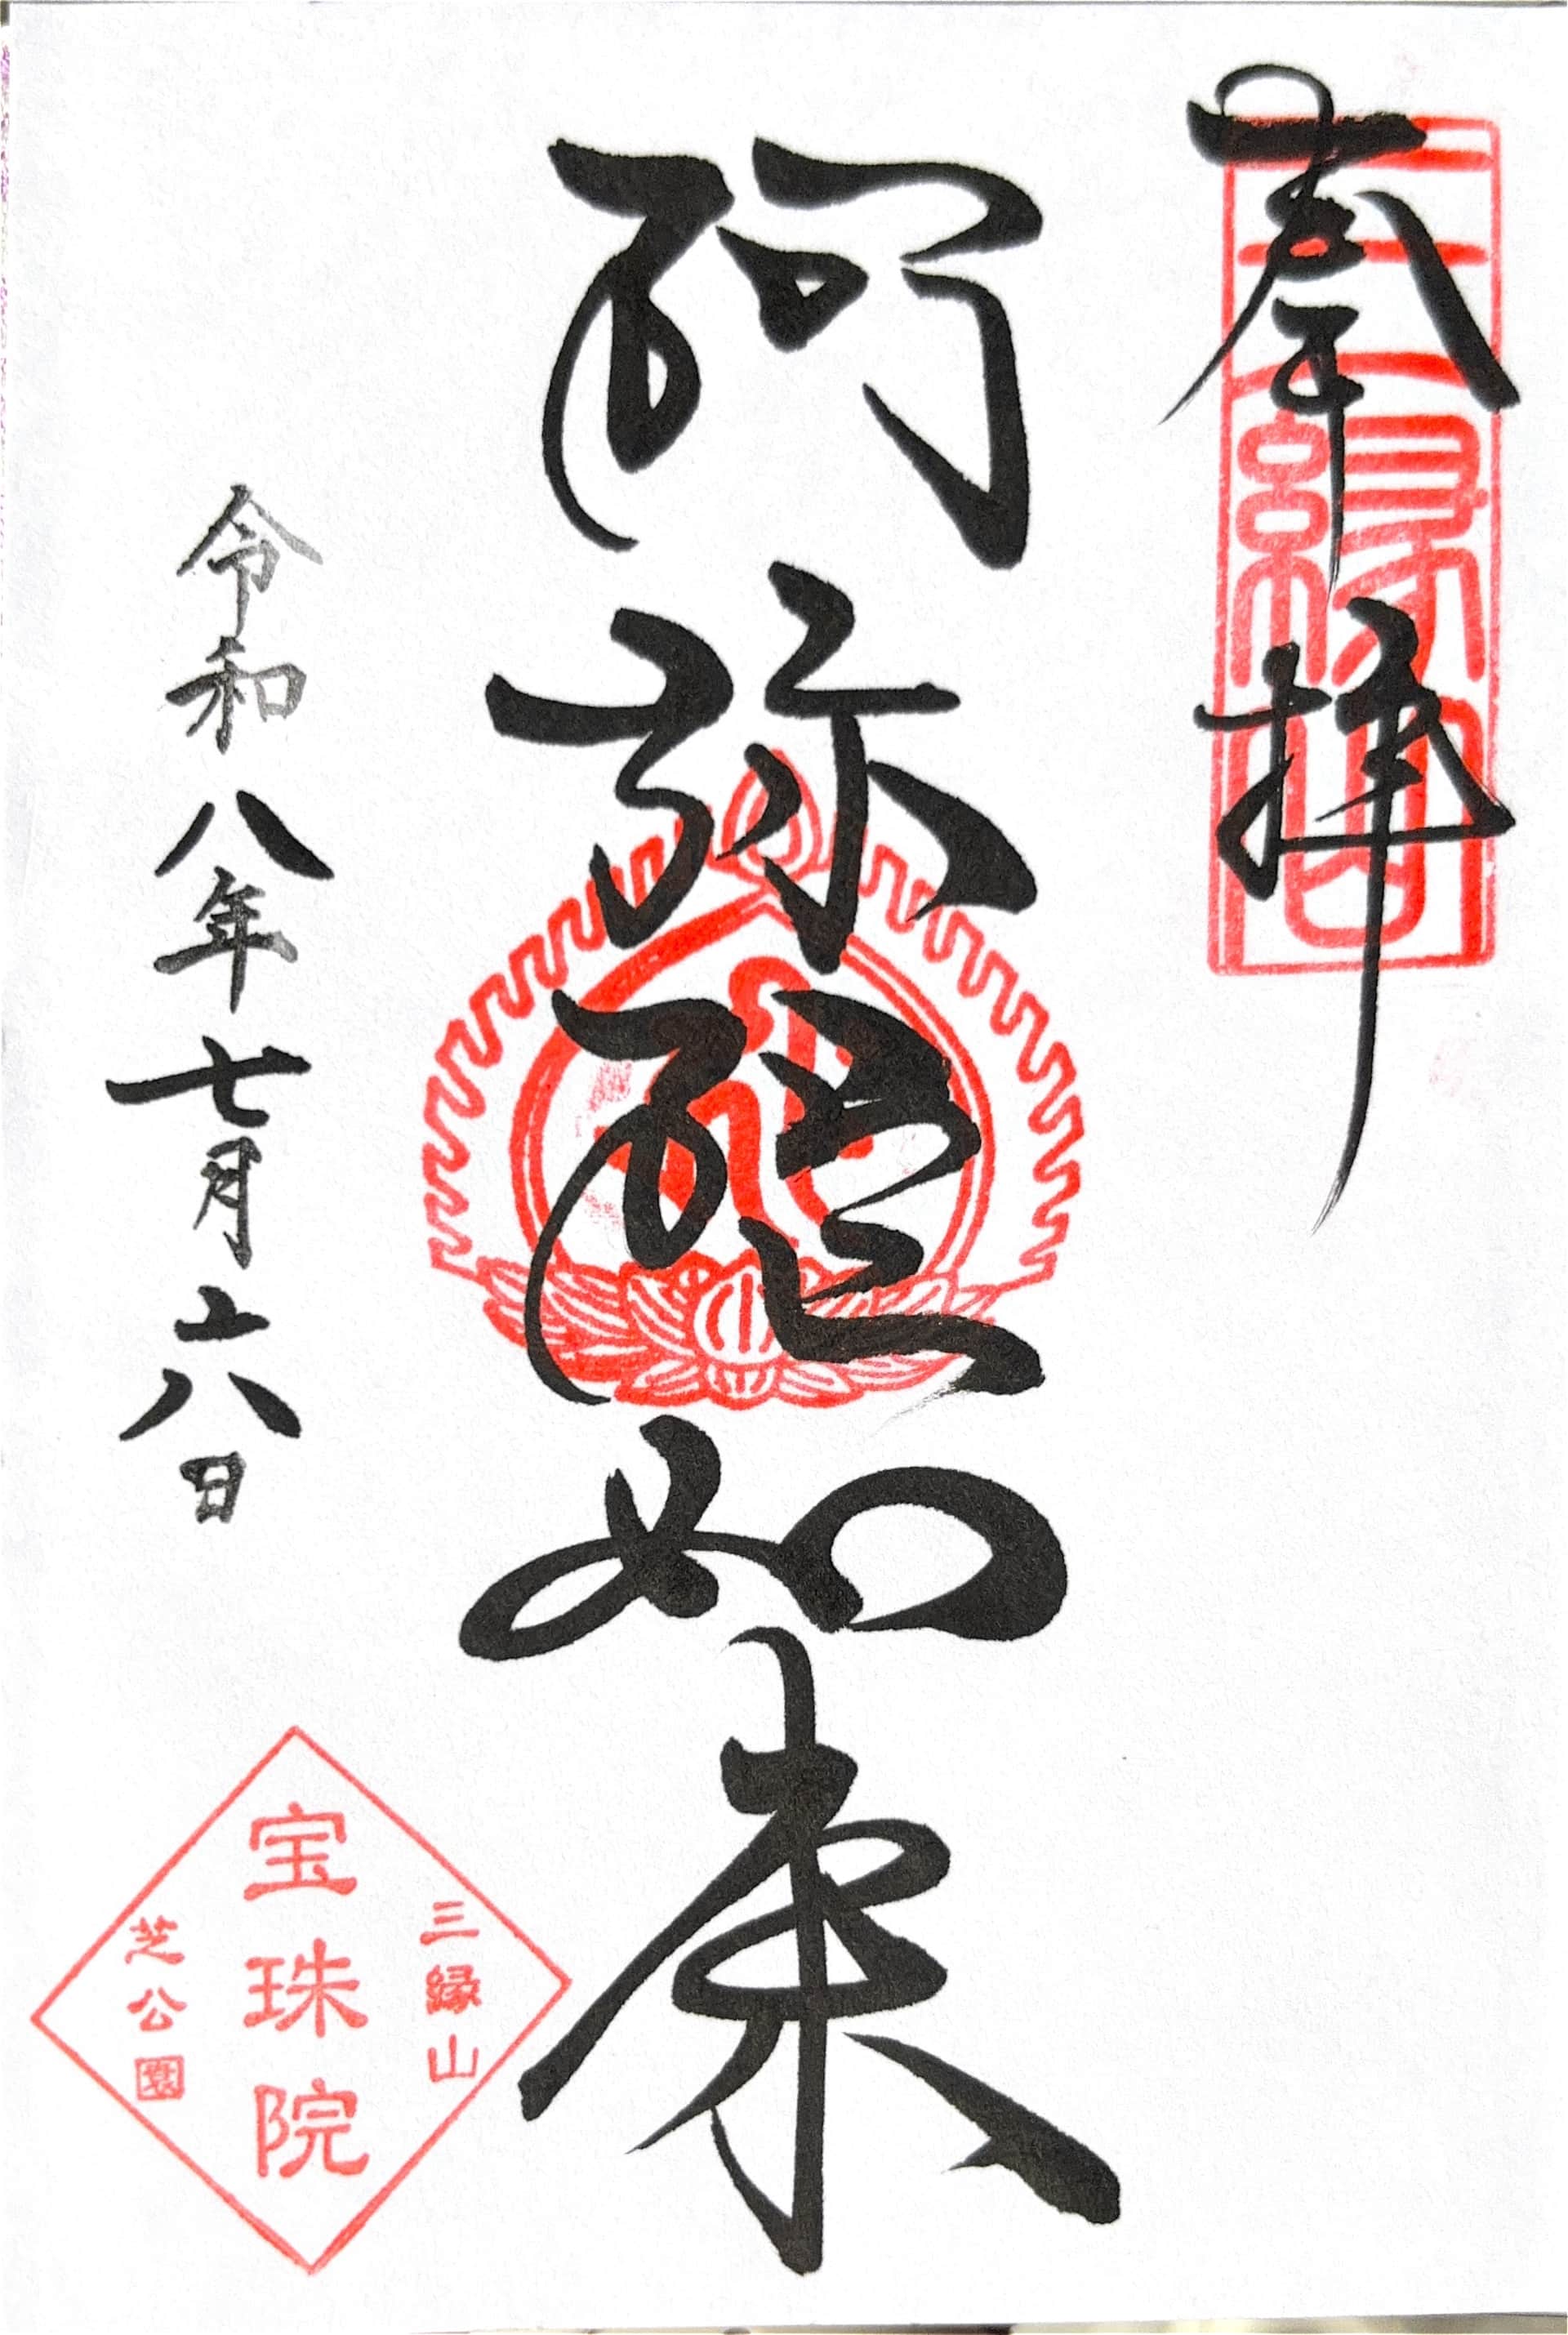 奉拝
三縁山
阿弥陀如来
令和八年七月六日
三縁山
宝珠院
芝公園